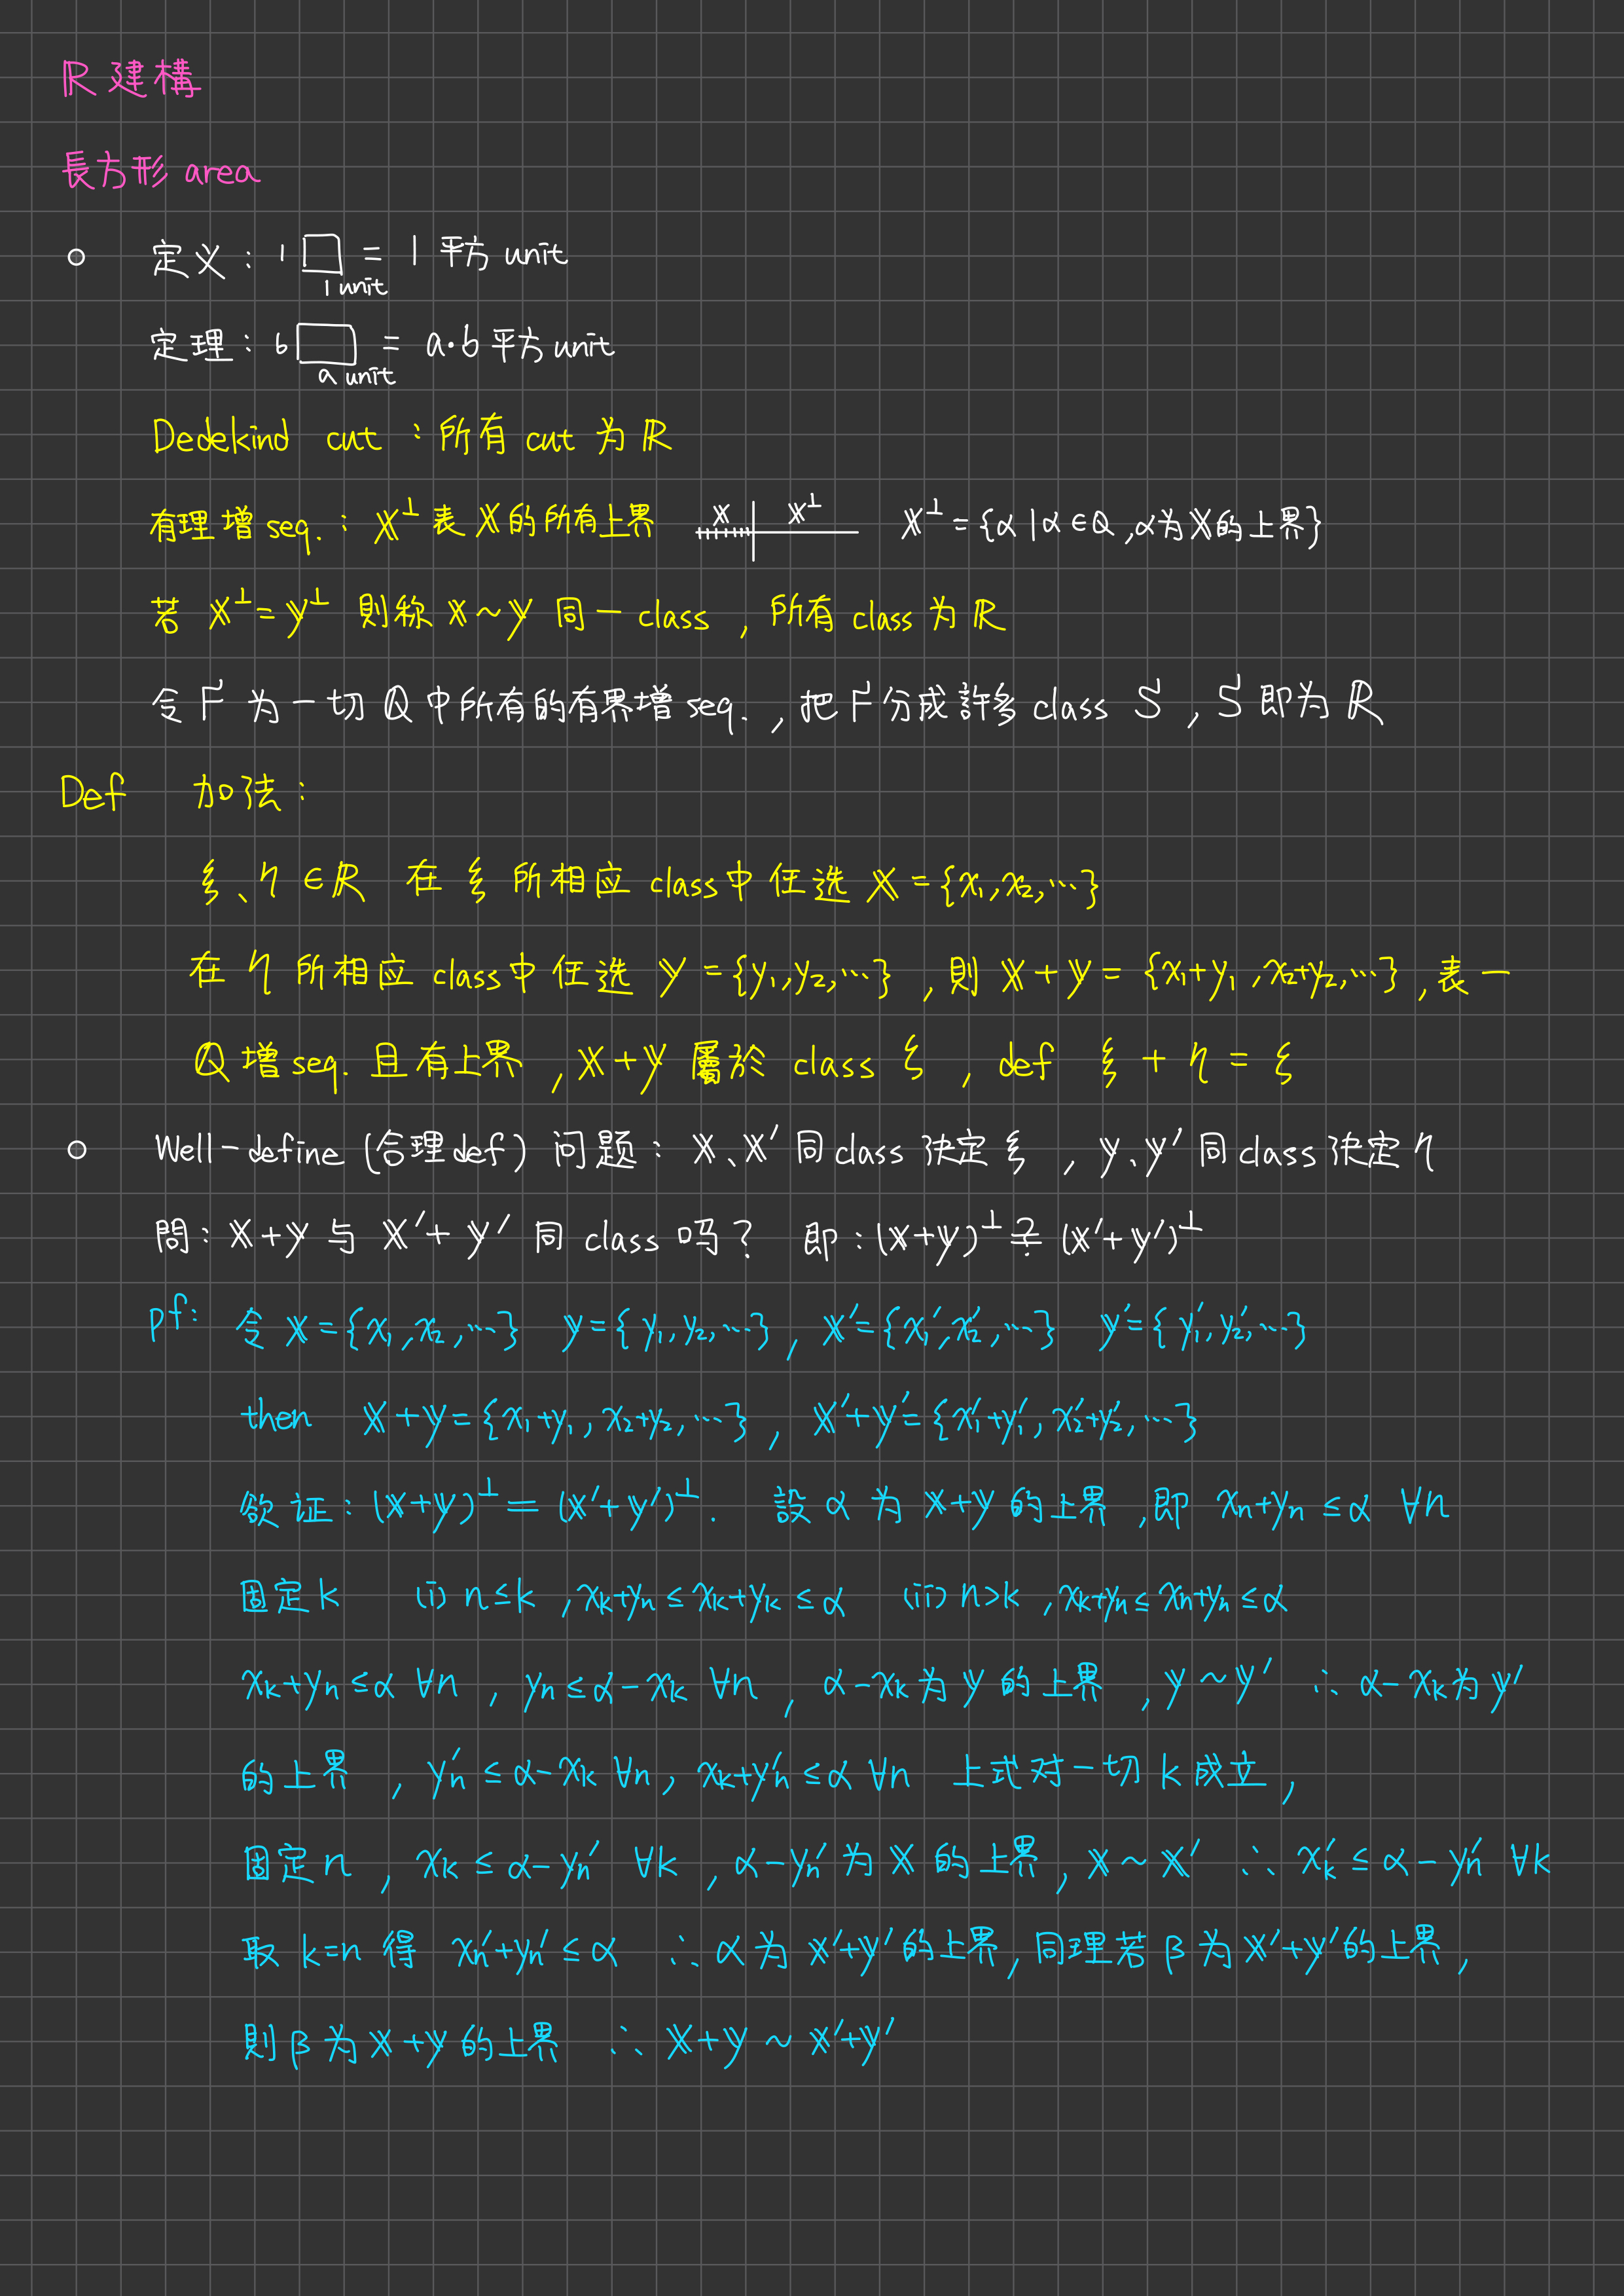 ℝ 建構
長方形 area
○ 定义 : 1 □ = 1 平方 unit
1 unit
定理 : b □ = a·b 平方 unit
a unit
Dedekind cut : 所有 cut 为 ℝ
有理增 seq. : 𝕏⊥ 表 𝕏 的所有上界 𝕏 𝕏⊥ 𝕏⊥ = {α | α ∈ ℚ , α为 𝕏 的上界}
若 𝕏⊥ = 𝕐⊥ 則称 𝕏 ~ 𝕐 同一 class , 所有 class 为 ℝ
令 F 为一切 ℚ 中所有的有界增 seq. , 把 F 分成許多 class S , S 即为 ℝ
Def 加法 :
ξ、η ∈ ℝ 在 ξ 所相应 class中任选 𝕏 = {x₁, x₂, ⋯}
在 η 所相应 class中任选 𝕐 = {y₁, y₂, ⋯} , 則 𝕏 + 𝕐 = {x₁+y₁ , x₂+y₂, ⋯} , 表一
ℚ 增 seq. 且有上界 , 𝕏 + 𝕐 屬於 class ζ , def ξ + η = ζ
○ Well-define (合理def) 问题 : 𝕏、𝕏′ 同 class 決定 ξ , 𝕐、𝕐′ 同 class 決定 η
問 : 𝕏 + 𝕐 与 𝕏′ + 𝕐′ 同 class 吗 ? 即 : (𝕏+𝕐)⊥ ≟ (𝕏′+𝕐′)⊥
pf: 令 𝕏 = {x₁, x₂, ⋯} 𝕐 = {y₁, y₂, ⋯} , 𝕏′ = {x₁′, x₂′, ⋯} 𝕐′ = {y₁′, y₂′, ⋯}
then 𝕏 + 𝕐 = {x₁+y₁, x₂+y₂, ⋯} , 𝕏′ + 𝕐′ = {x₁′+y₁′, x₂′+y₂′, ⋯}
欲证 : (𝕏+𝕐)⊥ = (𝕏′+𝕐′)⊥. 設 α 为 𝕏+𝕐 的上界 , 即 xₙ+yₙ ≤ α ∀n
固定 k (i) n ≤ k , xₖ+yₙ ≤ xₖ+yₖ ≤ α (ii) n > k , xₖ+yₙ ≤ xₙ+yₙ ≤ α
xₖ+yₙ ≤ α ∀n , yₙ ≤ α − xₖ ∀n , α − xₖ 为 𝕐 的上界 , 𝕐 ~ 𝕐′ ∴ α − xₖ 为 𝕐′
的上界 , yₙ′ ≤ α − xₖ ∀n , xₖ+yₙ′ ≤ α ∀n 上式对一切 k 成立 ,
固定 n , xₖ ≤ α − yₙ′ ∀k , α − yₙ′ 为 𝕏 的上界 , 𝕏 ~ 𝕏′ ∴ xₖ′ ≤ α − yₙ′ ∀k
取 k=n 得 xₙ′+yₙ′ ≤ α ∴ α 为 𝕏′+𝕐′ 的上界 , 同理若 β 为 𝕏′+𝕐′ 的上界 ,
則 β 为 𝕏+𝕐 的上界 ∴ 𝕏+𝕐 ~ 𝕏′+𝕐′